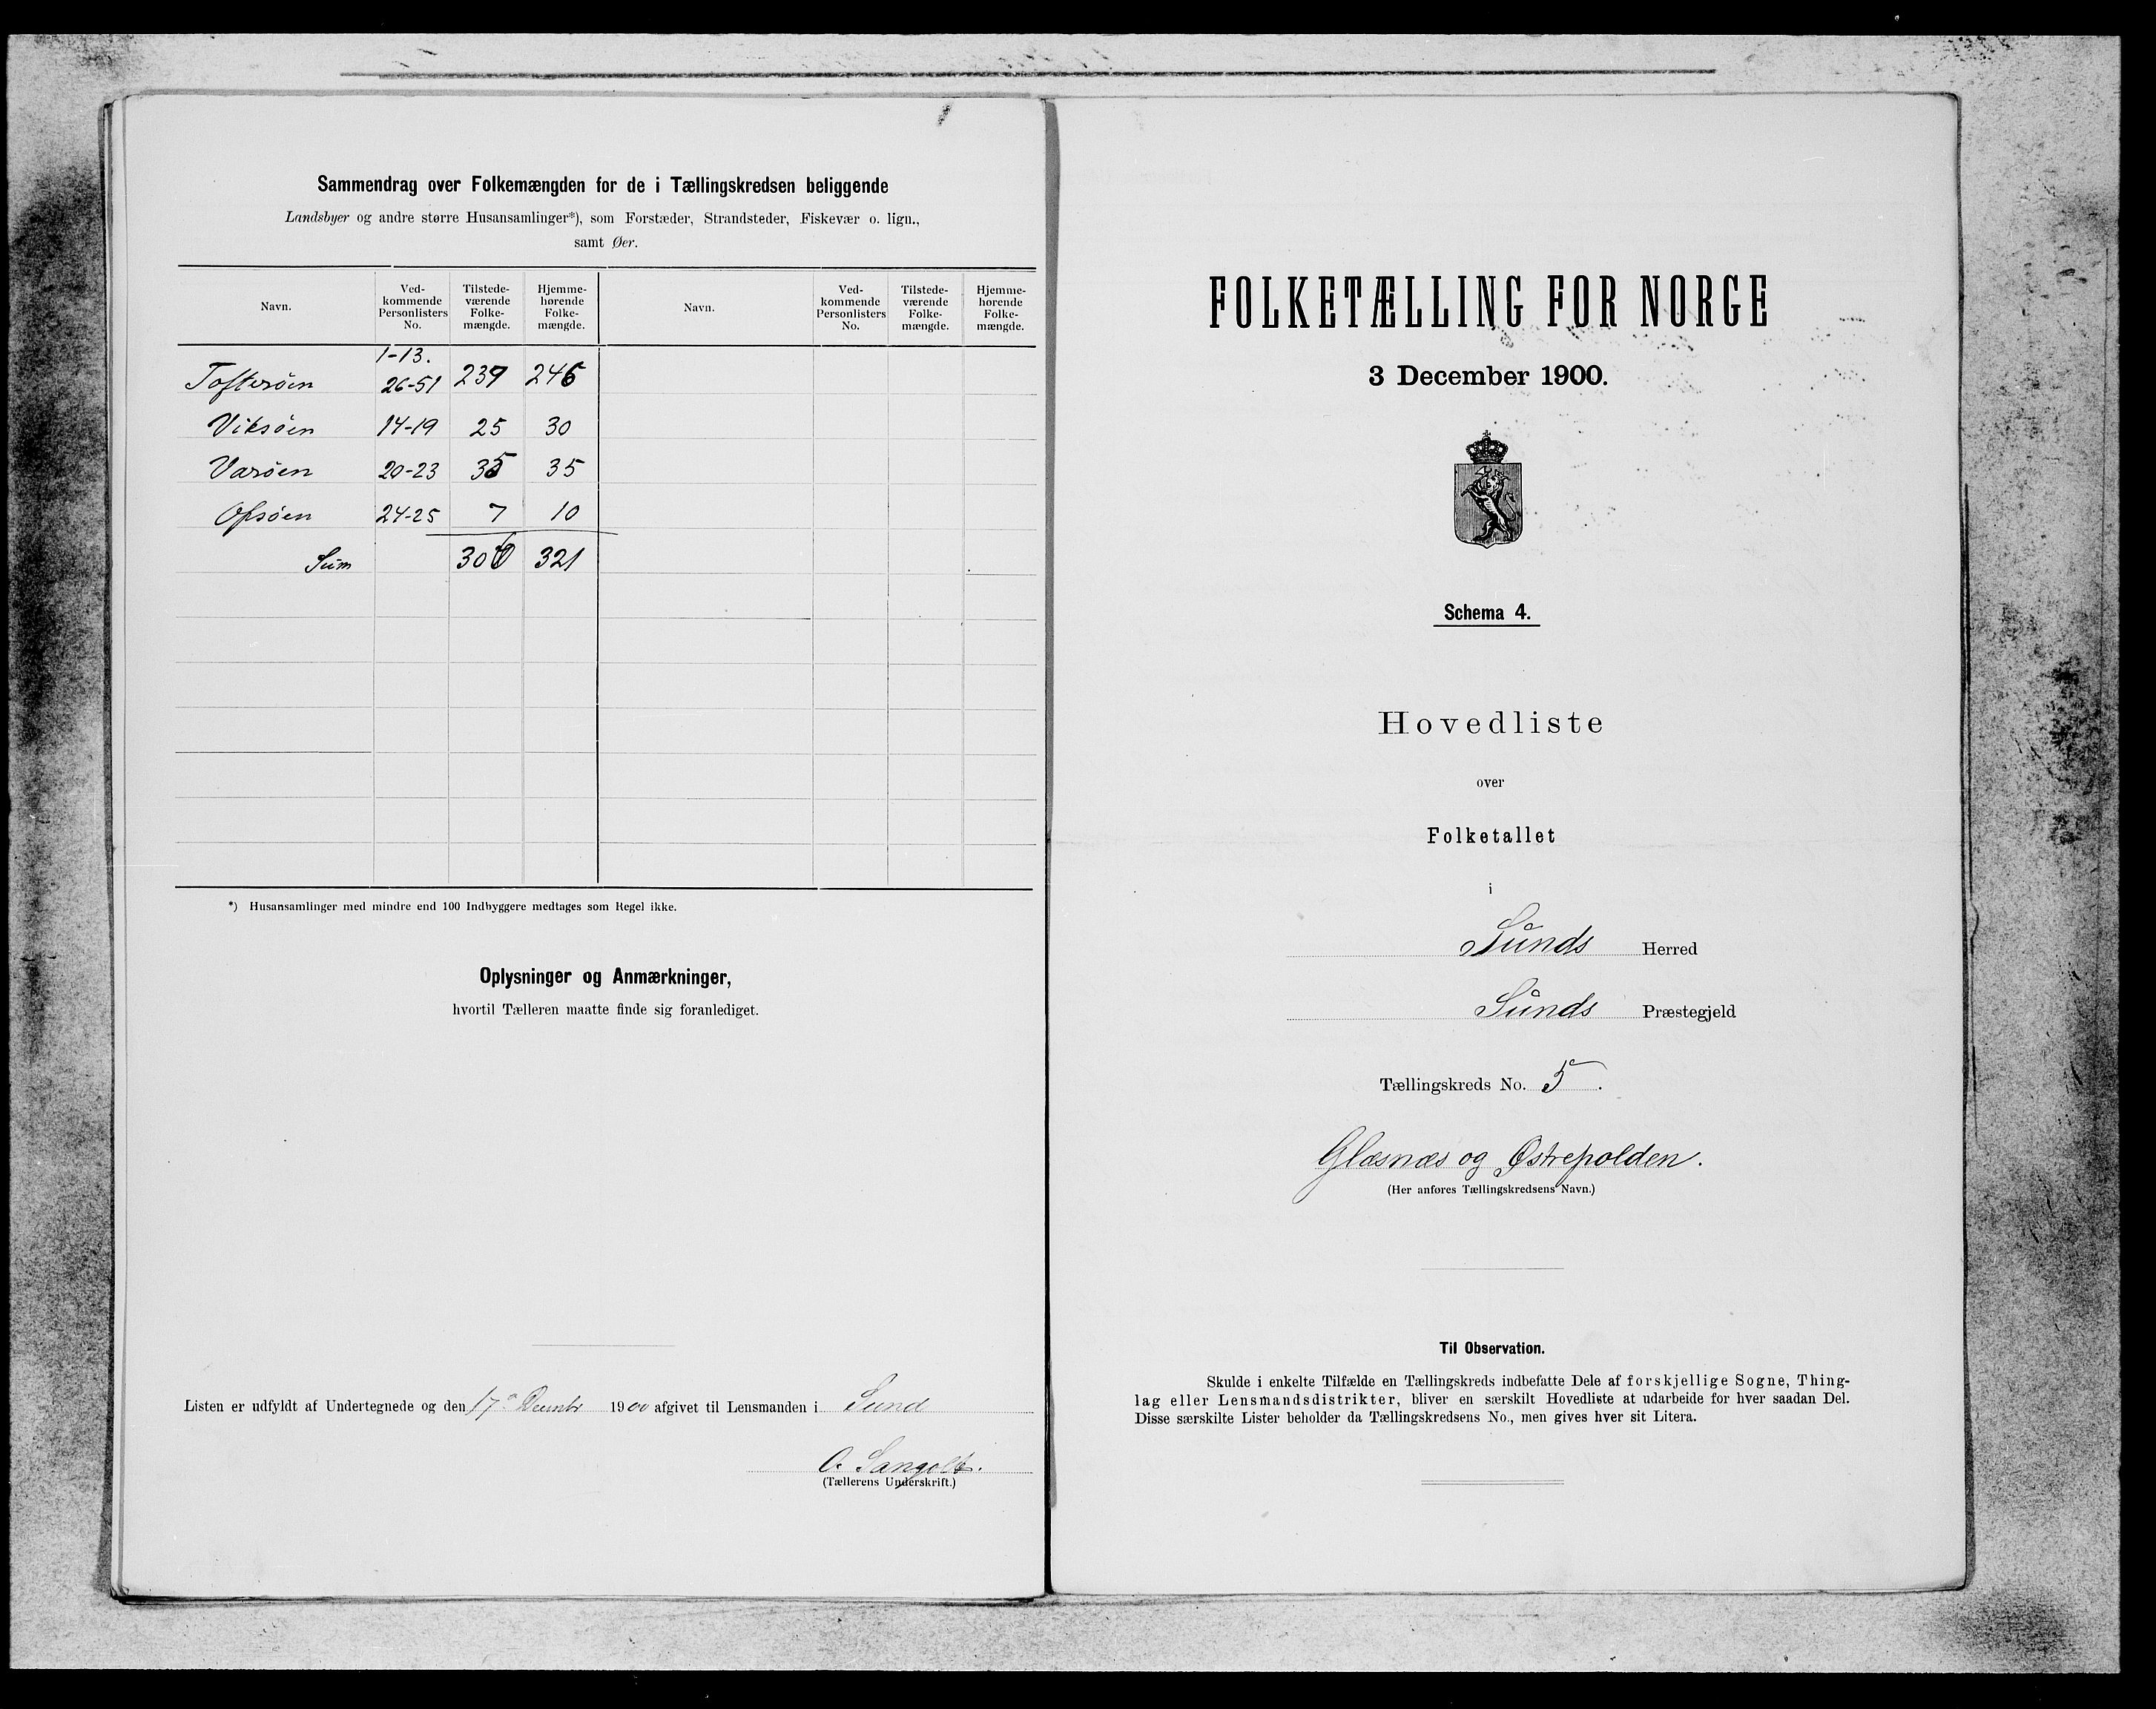 Sammendrag over Folkemængden for de i Tællingskredsen beliggende
Landsbyer og andre større Husansamlinger*), som Forstæder, Strandsteder, Fiskevær o. lign.,
samt Øer.
Navn. Ved-kommende Personlisters No. Tilstede-værende Folke-mængde. Hjemme-hørende Folke-mængde. Navn. Ved-kommende Personlisters No. Tilstede-værende Folke-mængde. Hjemme-hørende Folke-mængde.
1-13.
Tofterøen 26-51 239 246
Viksöen 14-19 25 30
Varöen 20-23 35 35
Ofsöen 24-25 7 10
Sum 306 321
*) Husansamlinger med mindre end 100 Indbyggere medtages som Regel ikke.
Oplysninger og Anmærkninger,
hvortil Tælleren maatte finde sig foranlediget.
Listen er udfyldt af Undertegnede og den 17de Decmbr 1900 afgivet til Lensmanden i Sund
O. Sangolt.
(Tællerens Underskrift.)
FOLKETÆLLING FOR NORGE
3 December 1900.
Schema 4.
Hovedliste
over
Folketallet
i
Sunds Herred
Sunds Præstegjeld
Tællingskreds No. 5.
Glæsnæs og Østrepolden.
(Her anføres Tællingskredsens Navn.)
Til Observation.
Skulde i enkelte Tilfælde en Tællingskreds indbefatte Dele af forskjellige Sogne, Thing-
lag eller Lensmandsdistrikter, bliver en særskilt Hovedliste at udarbeide for hver saadan Del.
Disse særskilte Lister beholder da Tællingskredsens No., men gives hver sit Litera.